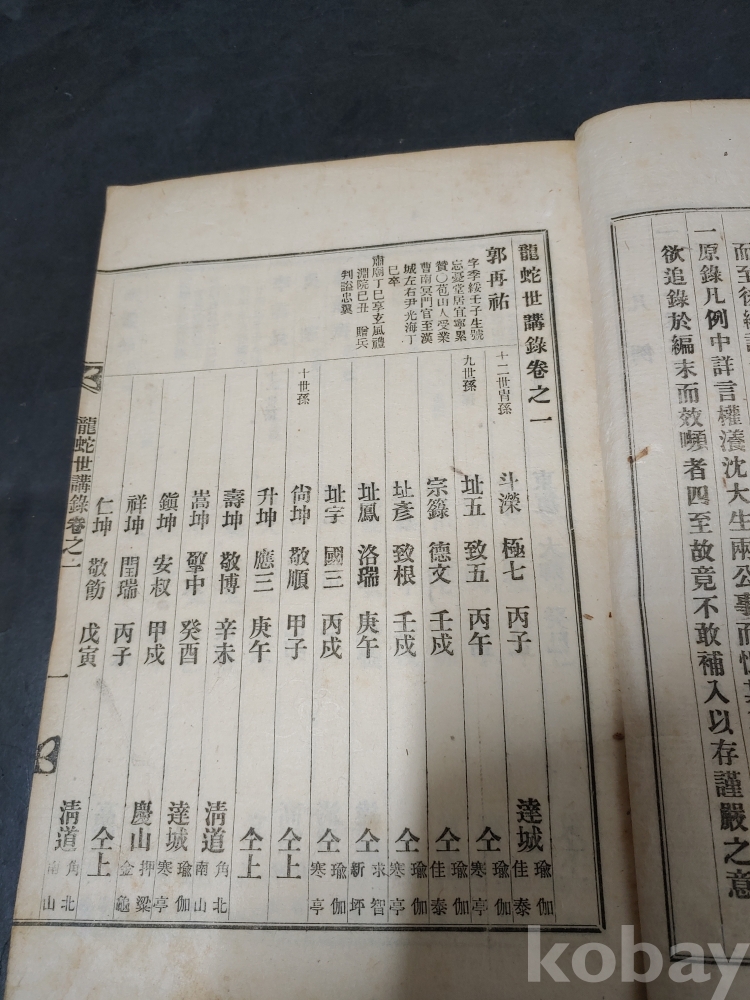 而至後
一原錄凡例中詳言權瀁沈大生兩公事而
欲追錄於編末而效嚬者四至故竟不敢補入以存謹嚴之意
龍蛇世講錄卷之一
郭再祐
字季綏壬子生號
忘憂堂居宜寧累
贊〇苞山人受業
曹南冥門官至漢
城左右尹光海丁
巳卒
肅廟丁巳享玄風禮
淵院己丑 贈兵
判諡忠翼
十二世胄孫 斗濚 極七 丙子 達城 瑜伽 佳泰
九世孫 址五 致五 丙午 仝 瑜伽 寒亭
宗籙 德文 壬戌 仝 瑜伽 佳泰
址彥 致根 壬戌 仝 瑜伽 寒亭
址鳳 洛瑞 庚午 仝 求智 新坪
址宇 國三 丙戌 仝 瑜伽 寒亭
十世孫 尙坤 敬順 甲子 仝上
升坤 應三 庚午 仝上
壽坤 敬博 辛未 淸道 角北 南山
嵩坤 擎中 癸酉 達城 瑜伽 寒亭
鎭坤 安叔 甲戌 慶山 押梁 金龜
祥坤 閏瑞 丙子 仝上
仁坤 敬飭 戊寅 淸道 角北 南山
龍蛇世講錄卷之一
一
kobay